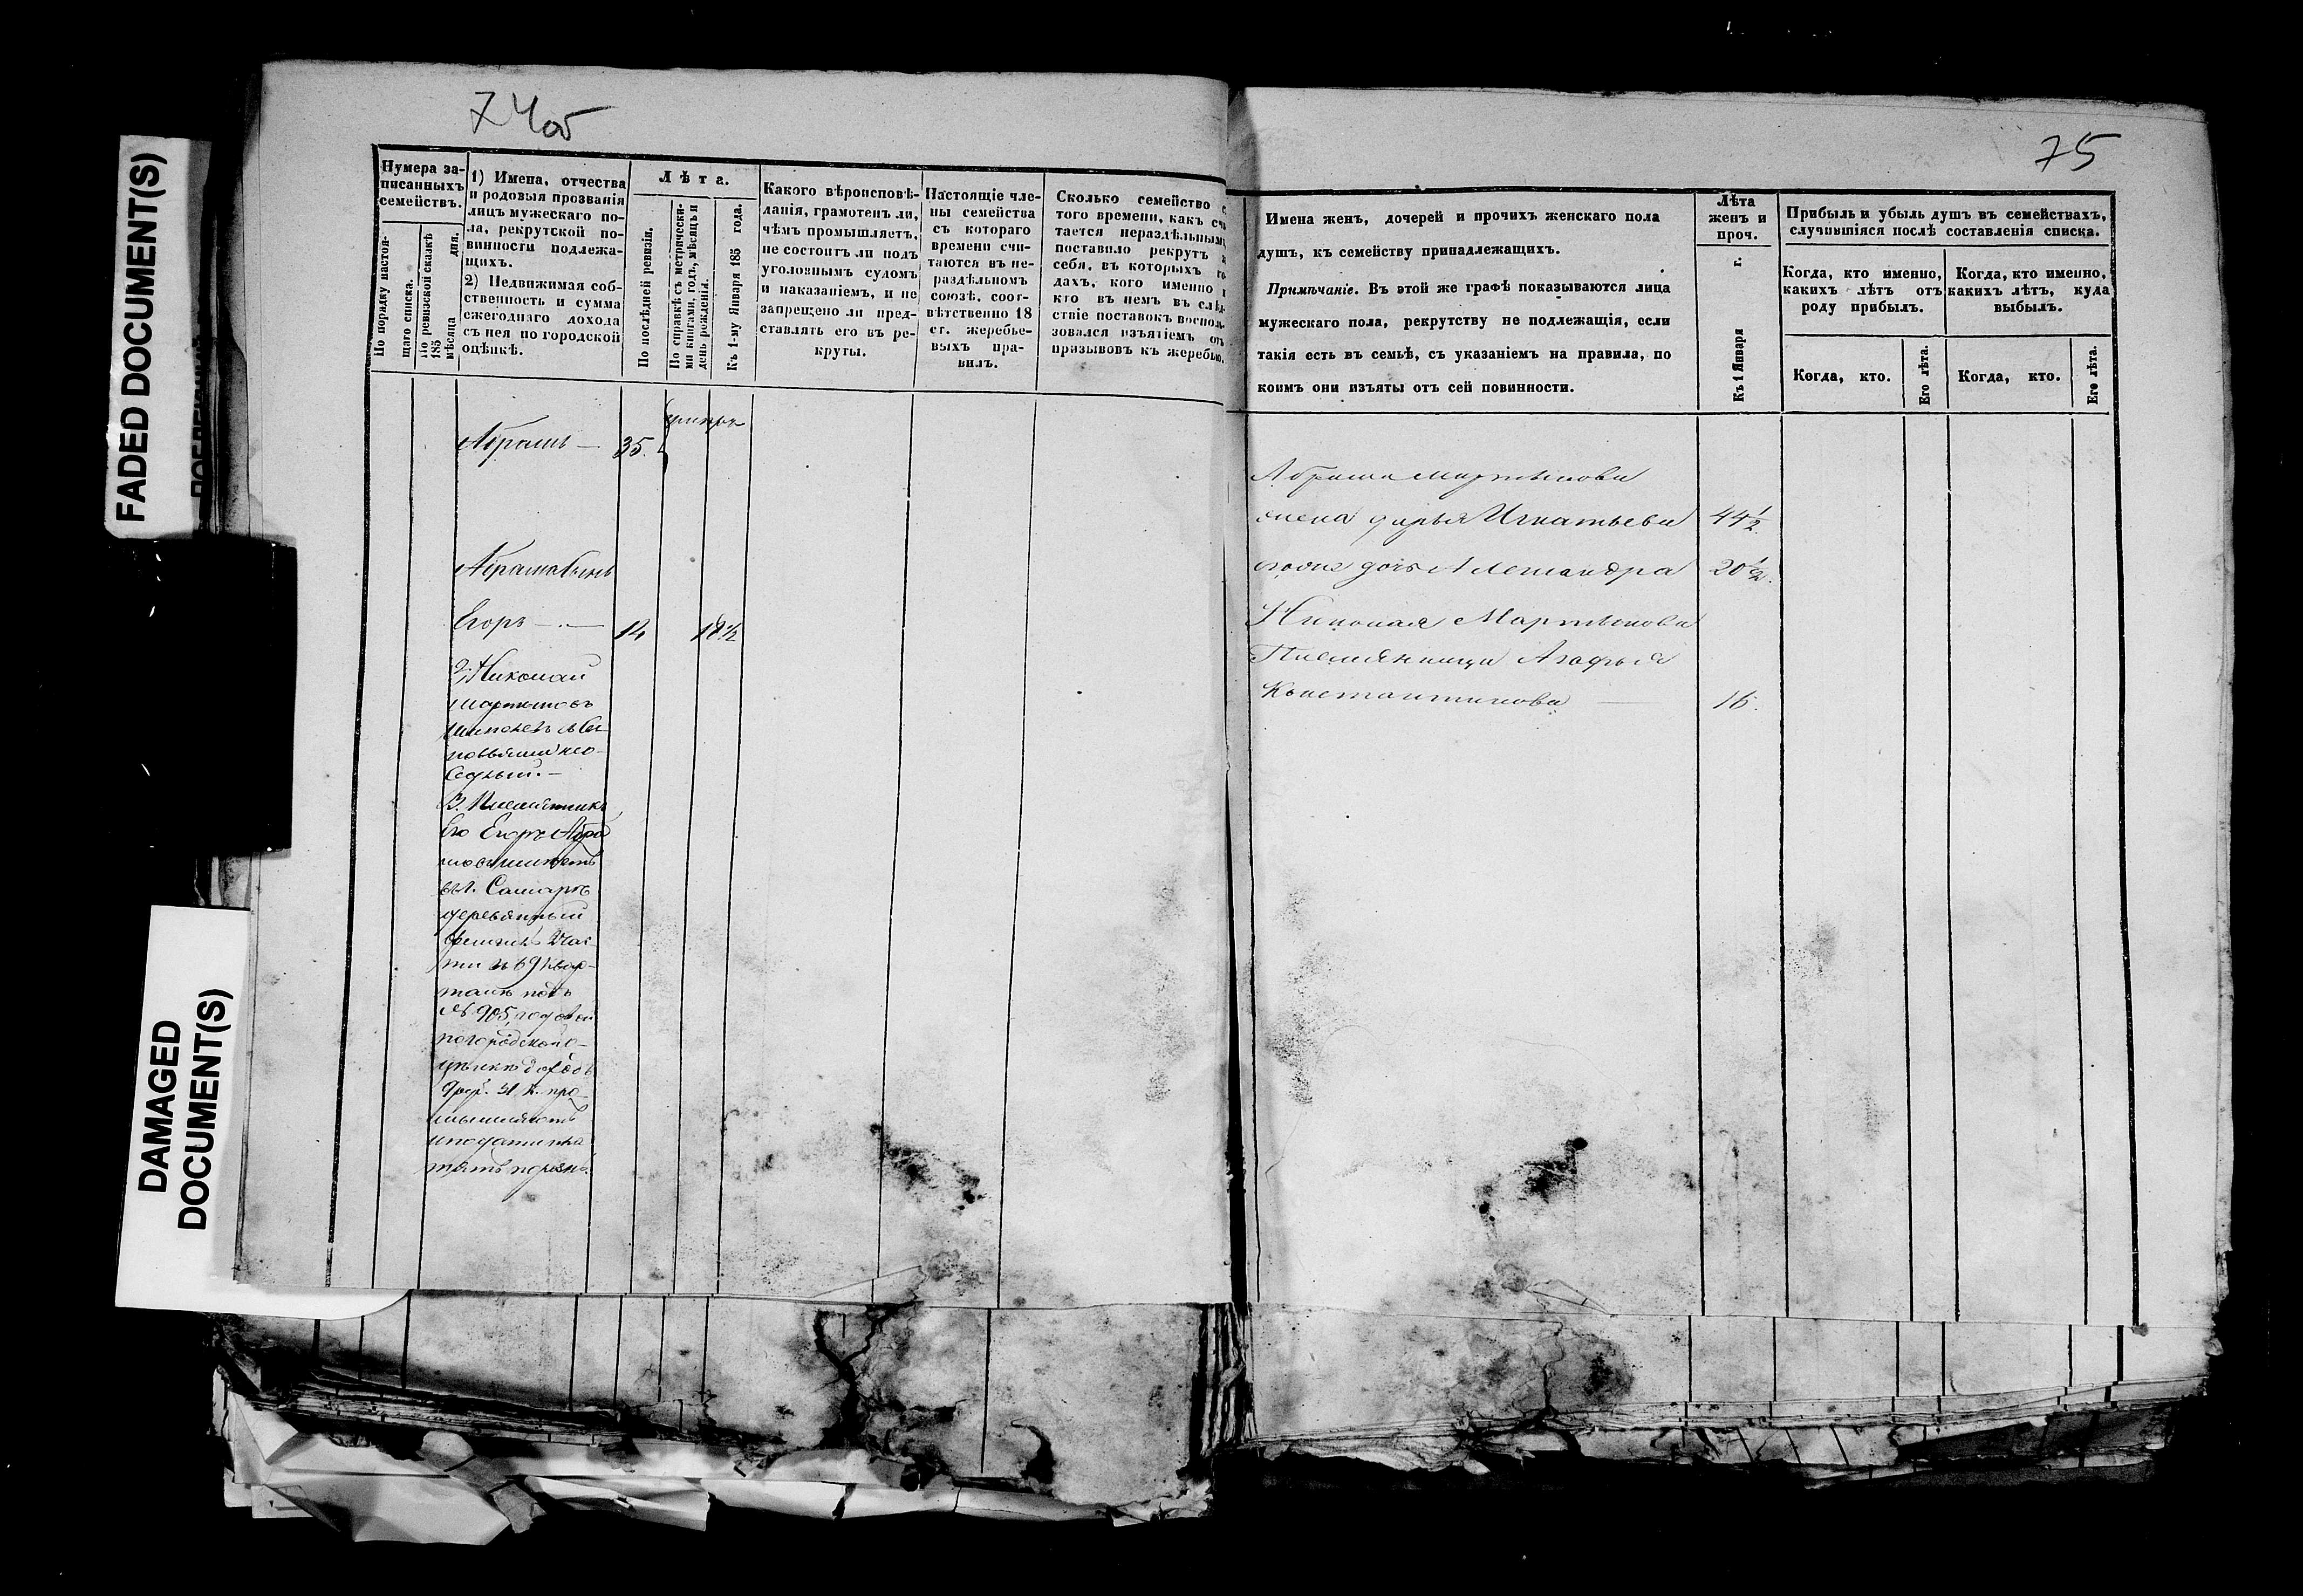 FADED DOCUMENT(S)
DAMAGED
DOCUMENT(S)
74об
Нумера за-
писанныхъ
семействъ.
По порядку настоя-
щаго списка.
По ревизской сказкѣ
185 мѣсяца дня.
1) Имена, отчества
и родовыя прозванія
лицъ мужескаго по-
ла, рекрутской по-
винности подлежа-
щихъ.
2) Недвижимая соб-
ственность и сумма
ежегоднаго дохода
съ нея по городской
оцѣнкѣ.
Лѣта.
По послѣдней ревизіи.
По справкѣ съ метрически-
ми книгами, годъ, мѣсяцъ и
день рожденія.
Къ 1-му Января 185 года.
Какого вѣроисповѣ-
данія, грамотенъ ли,
чѣмъ промышляетъ,
не состоитъ ли подъ
уголовнымъ судомъ
и наказаніемъ, и не
запрещено ли пред-
ставлять его въ ре-
круты.
Настоящіе чле-
ны семейства
съ котораго
времени счи-
таются въ не-
раздѣльномъ
союзѣ, соот-
вѣтственно 18
ст. жеребье-
выхъ пра-
вилъ.
Сколько семейство с
того времени, какъ счи
тается нераздѣльнымъ
поставило рекрутъ з
себя, въ которыхъ го
дахъ, кого именно и
кто въ немъ въ слѣд
ствіе поставокъ восполь
зовался изъятіемъ отъ
призывовъ къ жеребью.
Абрамъ — 35. умеръ
Абрама сынъ
Егоръ — 14 18 1/2
2, Николай
Мартыновъ
Седмый. —
3. Племянникъ
Его Егоръ Абра
въ г. Самарѣ
деревянный
флигель 2 час-
ти въ 69 квар-
талѣ подъ
№ 905, годовой
по городской о-
цѣнкѣ доходъ
9 руб. 51 к. про-
мышляютъ
и подати пла
тятъ порознь.
75
Имена женъ, дочерей и прочихъ женскаго пола
душъ, къ семейству принадлежащихъ.
Примѣчаніе. Въ этой же графѣ показываются лица
мужескаго пола, рекрутству не подлежащія, если
такія есть въ семьѣ, съ указаніемъ на правила, по
коимъ они изъяты отъ сей повинности.
Лѣта
женъ и
проч.
Къ 1 Января г.
Прибыль и убыль душъ въ семействахъ,
случившіяся послѣ составленія списка.
Когда, кто именно,
какихъ лѣтъ отъ
роду прибылъ.
Когда, кто именно,
какихъ лѣтъ, куда
выбылъ.
Когда, кто.
Его лѣта.
Когда, кто.
Его лѣта.
Абрама Мартынова
жена Дарья Игнатьева 44 1/2
дочь Александра 20 1/2.
Николая Мартынова
Племянница Агафья
Константинова — 16.